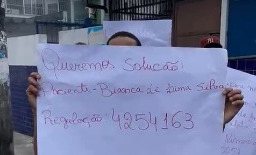 Queremos Solução:
Paciente - Bianca de Lima Silva
Regulação: 4254163